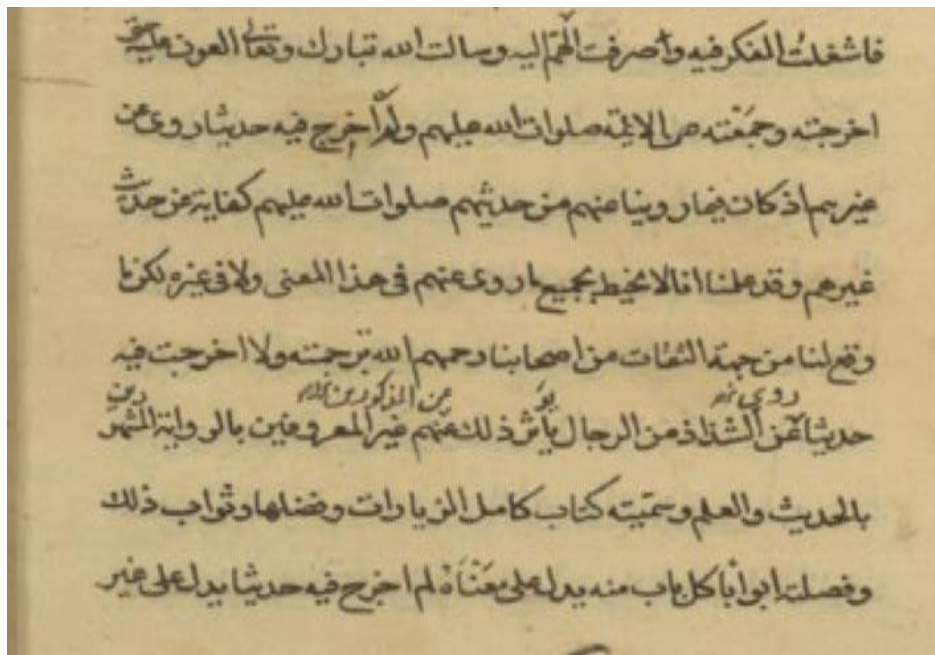 فاشغلتُ الفكر فيه وأصرفت الهمّ اليه وسالت الله تبارك وتعالى العون عليه حتى
اخرجته وجمَعْته عن الائمة صلوات الله عليهم ولم أخرج فيه حديثا روى عن
غيرهم اذ كان فيما روينا عنهم من حديثهم صلوات الله عليهم كفاية عن حديث
غيرهم وقد علمنا انا لا نحيط بجميع ما روى عنهم فى هذا المعنى ولا فى غيره لكن ما
وقع لنا من جهة الثقات من اصحابنا رحمهم الله برحمته ولا اخرجت فيه
روي
عن المذكورين
رين
حديثا عن الشذاذ من الرجال يأثر ذلك عنهم غير المعروفين بالرواية المشهر
بالحديث والعلم وسمّيته كتاب كامل الزيارات وفضلها وثواب ذلك
وفصلته ابوابا كل باب منه يدل على معَنْاهْ لم اخرج فيه حديثا يدل على غير